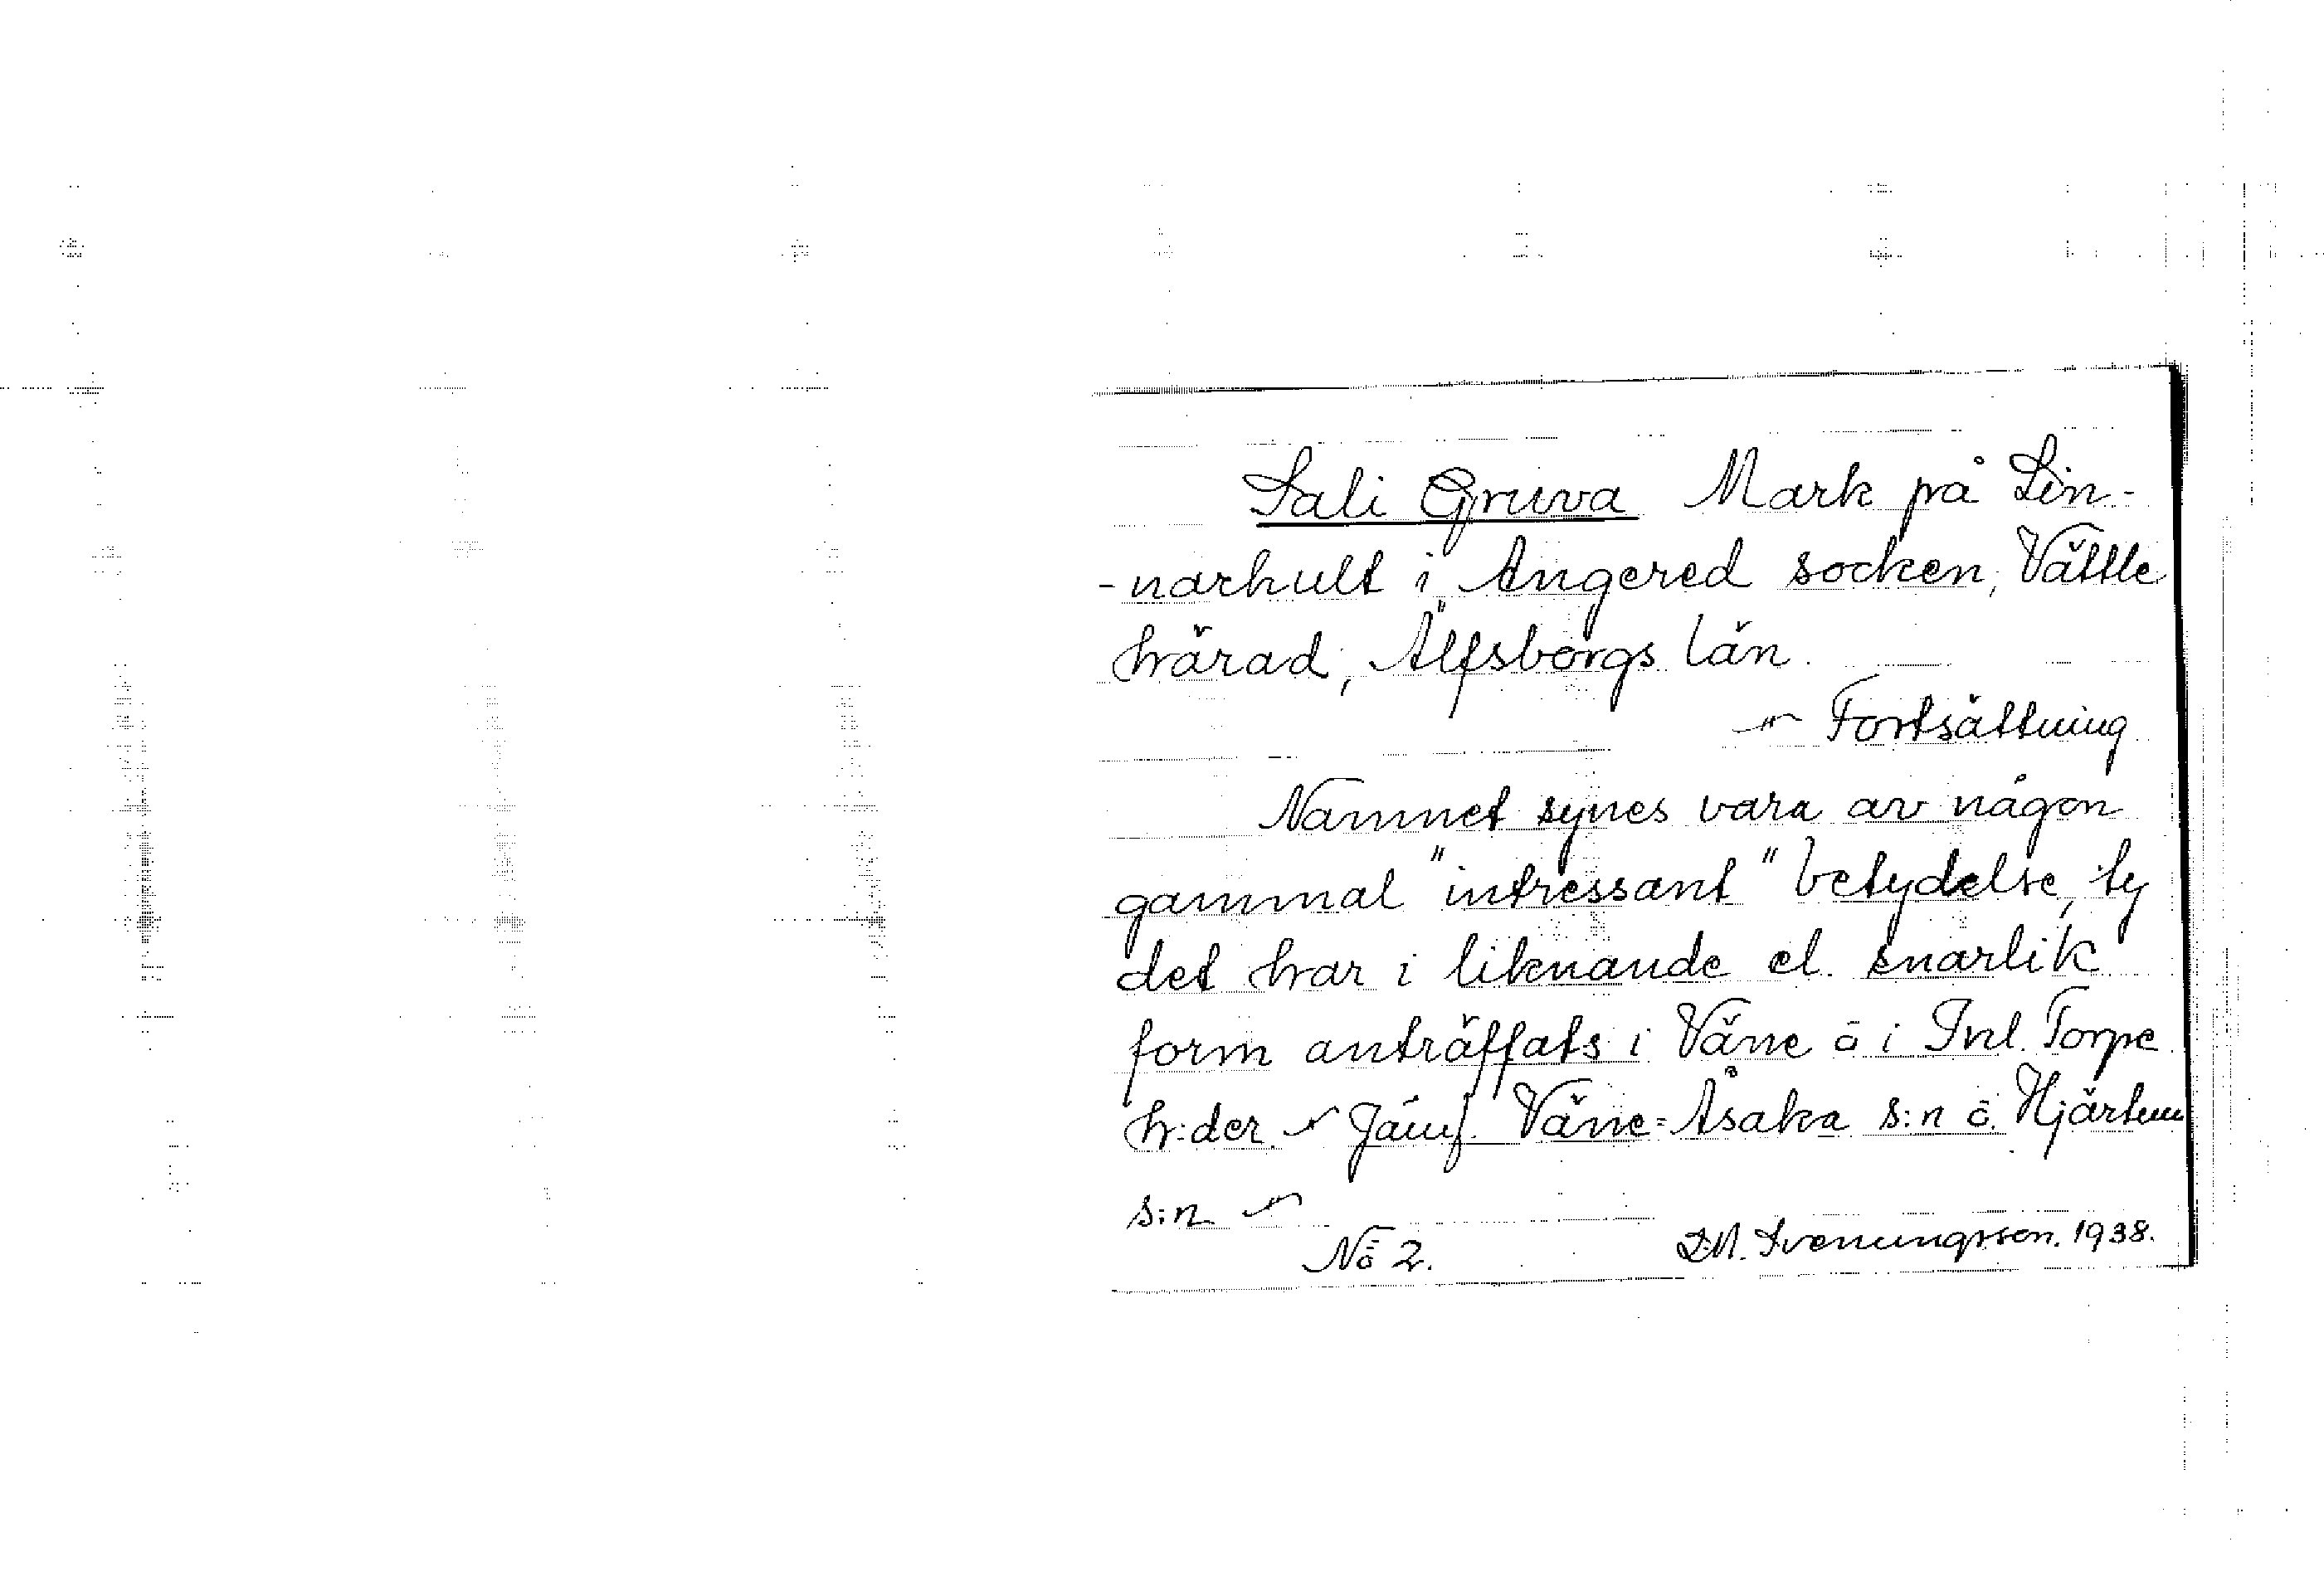 Sali Gruva Mark på Lin-
-narhult i Angered socken, Vättle
härad, Älfsborgs län.
~ Fortsättning
Namnet synes vara av någon
gammal "intressant" betydelse, ty
det har i liknande el. snarlik
form anträffats i Väne ō i Inl. Torpe
h:der. ~ Jämf. Väne=Åsaka s:n ō. Hjärtum
s:n ~
No 2. D.M. Svenungsson. 1938.